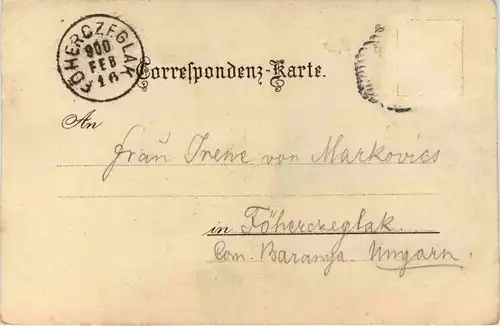 FŐHERCZEGLAK
900
FEB
16
Correspondenz-Karte.
An
Frau Irene von Markovics
in Főherczeglak.
Com. Baranya. Ungarn.